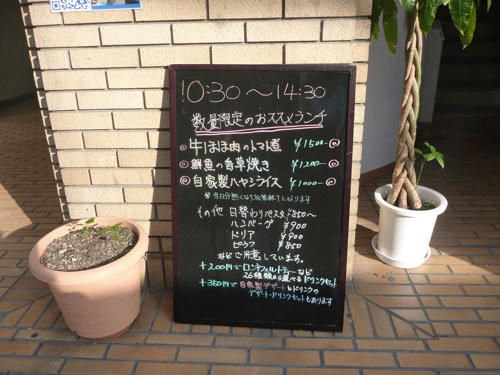 10:30～14:30
数量限定のおススメランチ
牛ほほ肉のトマト煮 ¥1500-
鮮魚の香草焼き ¥1200-
自家製ハヤシライス ¥1000-
※当日分無くなり次第終了となります
その他 日替わりパスタ ¥850～
ハンバーグ ¥900
ドリア ¥900
ピラフ ¥850
などご用意しています。
+200円で ロンネフェルトティーなど
26種類から選べるドリンクセット
+350円で自家製デザートとドリンクの
デザート・ドリンクセットもあります